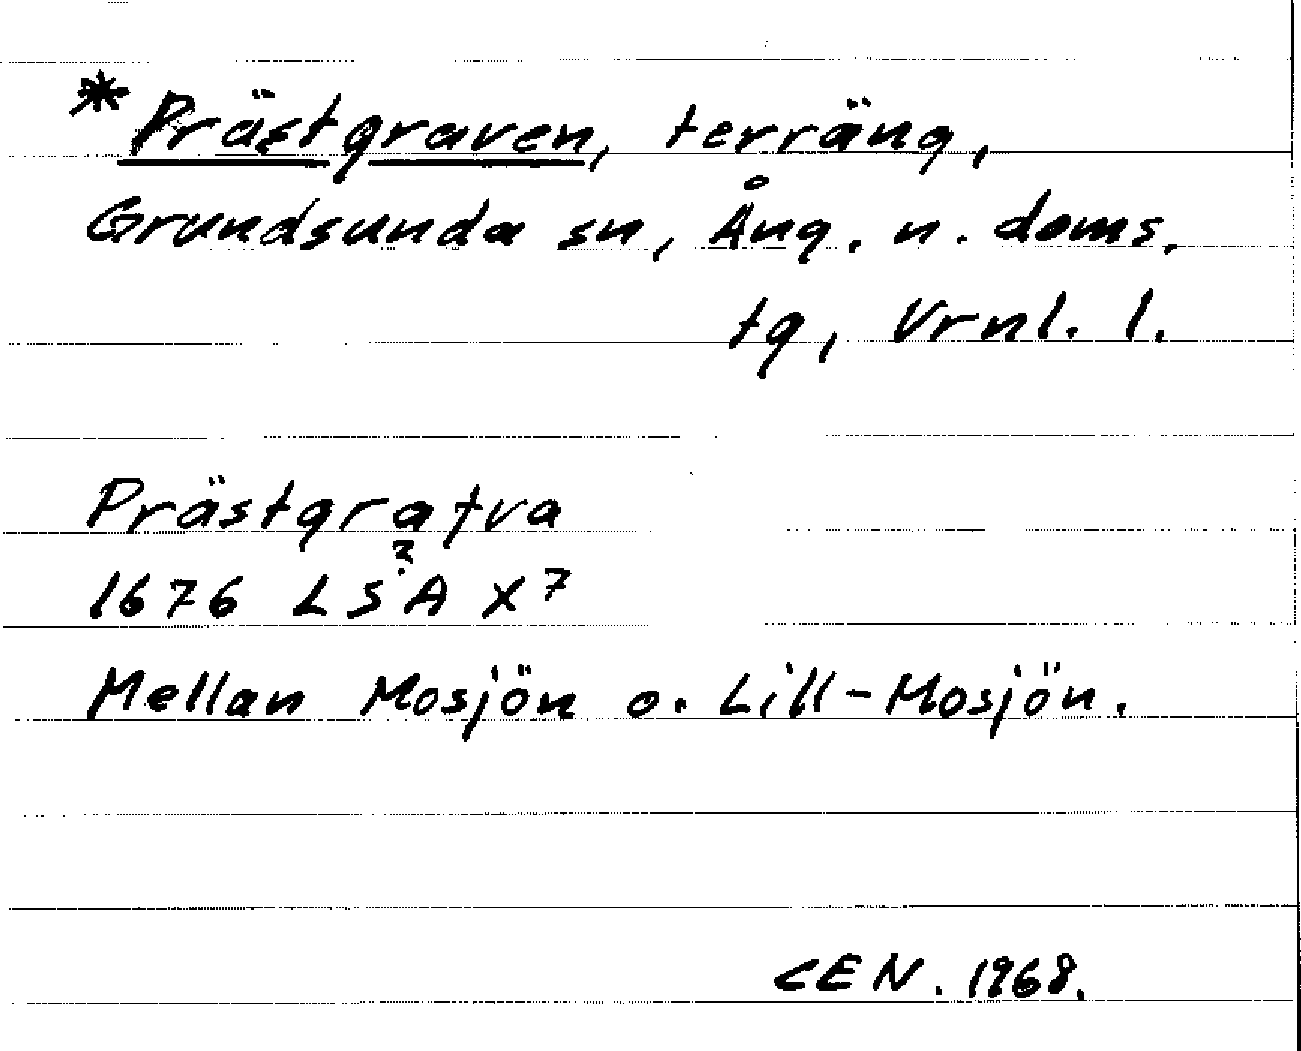 * Prästgraven, terräng,
Grundsunda sn, Ång. n. doms.
tg, Vrnl. l.
Prästgrafva
?
1676 LSA X7
Mellan Mosjön o. Lill-Mosjön.
CEN. 1968.